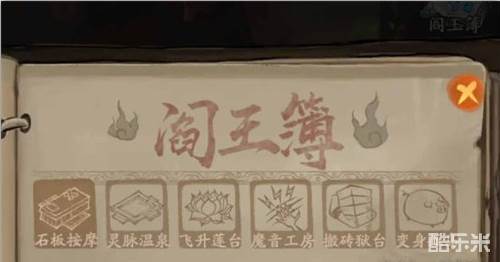 阎王簿
阎王簿
石板按摩 灵脉温泉 飞升莲台 魔音工房 搬砖狱台 变身
酷乐米